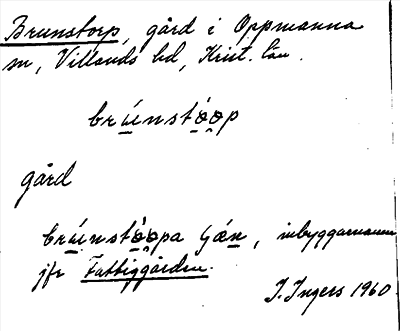 Brunstorp, gård i Oppmanna
sn, Villands hd, Krist. län.
brúnstò̤o̤p
gård
brúnstò̤o̤pa gæn, inbyggarnamn
jfr Fattiggården.
I. Ingers 1960